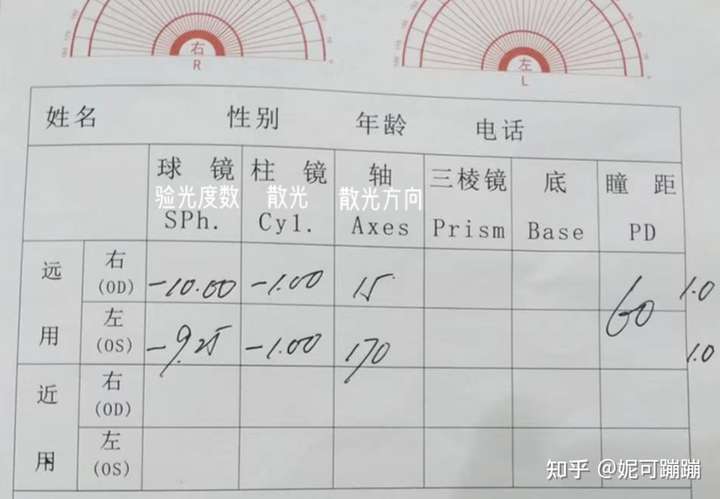 右
R
左
L
姓名 性别 年龄 电话
球镜 柱镜 轴 三棱镜 底 瞳距
验光度数 散光 散光方向
SPh. Cyl. Axes Prism Base PD
远用
右
(OD) -10.00 -1.00 15 60 1.0
左
(OS) -9.25 -1.00 170 1.0
近用
右
(OD)
左
(OS)
知乎 @妮可蹦蹦